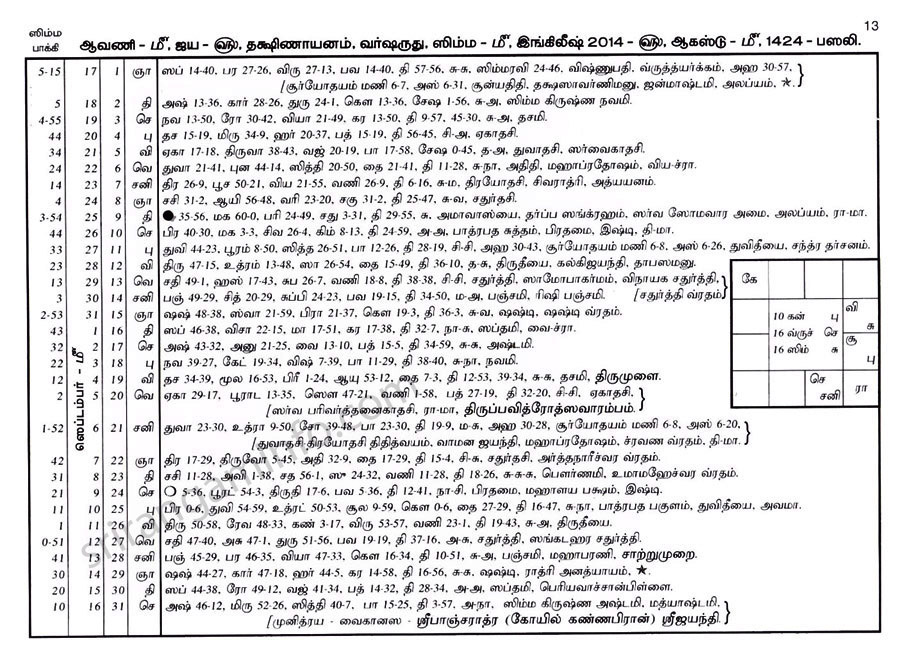 13
ஸிம்ம
பாக்கி
ஆவணி - மீ, ஜய - ௵, தக்ஷிணாயனம், வர்ஷருது, ஸிம்ம - மீ, இங்கிலீஷ் 2014 - ௵, ஆகஸ்டு - மீ, 1424 - பஸலி.
5-15 17 1 ஞா ஸப் 14-40, பர 27-26, விரு 27-13, பவ 14-40, தி 57-56, சு-சு, ஸிம்மரவி 24-46, விஷ்ணுபதி, வ்ருத்த்யர்க்கம், அஹ 30-57,
[சூர்யோதயம் மணி 6-7, அஸ் 6-31, சூன்யதிதி, தக்ஷஸாவர்ணிமனு, ஜன்மாஷ்டமி, அலப்யம், ★.
5 18 2 தி அஷ் 13-36, கார் 28-26, துரு 24-1, கௌ 13-36, சேஷ 1-56, சு-அ, ஸிம்ம கிருஷ்ண நவமி.
4-55 19 3 செ நவ 13-50, ரோ 30-42, வியா 21-49, கர 13-50, தி 9-57, 45-30, சு-அ, தசமி.
44 20 4 பு தச 15-19, மிரு 34-9, ஹர் 20-37, பத் 15-19, தி 56-45, சி-அ, ஏகாதசி.
34 21 5 வி ஏகா 17-18, திருவா 38-43, வஜ் 20-19, பா 17-58, சேஷ 0-45, த-அ, துவாதசி, ஸர்வைகாதசி.
24 22 6 வெ துவா 21-41, புன 44-14, ஸித்தி 20-50, தை 21-41, தி 11-28, சு-நா, அதிதி, மஹாப்ரதோஷம், விய-ச்ரா.
14 23 7 சனி திர 26-9, பூச 50-21, விய 21-55, வணி 26-9, தி 6-16, சு-ம, திரயோதசி, சிவராத்ரி, அத்யயனம்.
4 24 8 ஞா சசி 31-2, ஆயி 56-48, வரி 23-20, சகு 31-2, தி 25-47, சு-வ, சதுர்தசி.
3-54 25 9 தி ● 35-56, மக 60-0, பரி 24-49, சது 3-31, தி 29-55, சு, அமாவாஸ்யை, தர்ப்ப ஸங்க்ரஹம், ஸர்வ ஸோமவார அமை, அலப்யம், ரா-மா.
44 26 10 செ பிர 40-30, மக 3-3, சிவ 26-4, கிம் 8-13, தி 24-59, அ-அ, பாத்ரபத சுத்தம், பிரதமை, இஷ்டி, தி-மா.
33 27 11 பு துவி 44-23, பூரம் 8-50, ஸித்த 26-51, பா 12-26, தி 28-19, சி-சி, அஹ 30-43, சூர்யோதயம் மணி 6-8, அஸ் 6-26, துவிதீயை, சந்த்ர தர்சனம்.
23 28 12 வி திரு 47-15, உத்ரம் 13-48, ஸா 26-54, தை 15-49, தி 36-10, த-சு, திருதீயை, கல்கிஜயந்தி, தாபஸமனு.
13 29 13 வெ சதி 49-1, ஹஸ் 17-43, சுப 26-7, வணி 18-8, தி 38-38, சி-சி, சதுர்த்தி, ஸாமோபாகர்மம், விநாயக சதுர்த்தி,
3 30 14 சனி பஞ் 49-29, சித் 20-29, சுப்பி 24-23, பவ 19-15, தி 34-50, ம-அ, பஞ்சமி, ரிஷி பஞ்சமி. [சதுர்த்தி வ்ரதம்
2-53 31 15 ஞா ஷஷ் 48-38, ஸ்வா 21-59, பிரா 21-37, கௌ 19-3, தி 36-3, சு-வ, ஷஷ்டி, ஷஷ்டி வ்ரதம்.
ஸெப்டம்பர் - மீ
43 1 16 தி ஸப் 46-38, விசா 22-15, மா 17-51, கர 17-38, தி 32-7, நா-சு, ஸப்தமி, வை-ச்ரா.
32 2 17 செ அஷ் 43-32, அனு 21-25, வை 13-10, பத் 15-5, தி 34-59, சு-சு, அஷ்டமி.
22 3 18 பு நவ 39-27, கேட் 19-34, விஷ் 7-39, பா 11-29, தி 38-40, சு-நா, நவமி.
12 4 19 வி தச 34-39, மூல 16-53, பிரீ 1-24, ஆயு 53-12, தை 7-3, தி 12-53, 39-34, சு-சு, தசமி, திருமுளை.
2 5 20 வெ ஏகா 29-17, பூராட 13-35, ஸௌ 47-21, வணி 1-58, பத் 27-19, தி 32-20, சி-சி, ஏகாதசி,
[ஸர்வ பரிவர்த்தனைகாதசி, ரா-மா, திருப்பவித்ரோத்ஸவாரம்பம்.
1-52 6 21 சனி துவா 23-30, உத்ரா 9-50, சோ 39-48, பா 23-30, தி 19-9, ம-சு, அஹ 30-28, சூர்யோதயம் மணி 6-8, அஸ் 6-20,
[துவாதசி-திரயோதசி திதித்வயம், வாமன ஜயந்தி, மஹாப்ரதோஷம், ச்ரவண வ்ரதம், தி-மா.
42 7 22 ஞா திர 17-29, திருவோ 5-45, அதி 32-9, தை 17-29, தி 15-4, சி-சு, சதுர்தசி, அர்த்தநாரீச்வர வ்ரதம்.
31 8 23 தி சசி 11-28, அவி 1-38, சத 56-1, ஸு 24-32, வணி 11-28, தி 18-26, சு-சு-சு, பௌர்ணமி, உமாமஹேச்வர வ்ரதம்.
21 9 24 செ ○ 5-36, பூரட் 54-3, திருதி 17-6, பவ 5-36, தி 12-41, நா-சி, பிரதமை, மஹாளய பக்ஷம், இஷ்டி.
11 10 25 பு பிர 0-6, துவி 54-59, உத்ரட் 50-53, சூல 9-59, கௌ 0-6, தை 27-29, தி 16-47, சு-நா, பாத்ரபத பகுளம், துவிதீயை, அவமா.
1 11 26 வி திரு 50-58, ரேவ 48-33, கண் 3-17, விரு 53-57, வணி 23-1, தி 19-43, சு-அ, திருதீயை.
0-51 12 27 வெ சதி 47-40, அசு 47-1, துரு 51-56, பவ 19-19, தி 37-16, அ-சு, சதுர்த்தி, ஸங்கடஹர சதுர்த்தி.
41 13 28 சனி பஞ் 45-29, பர 46-35, வியா 47-33, கௌ 16-34, தி 10-51, சு-அ, பஞ்சமி, மஹாபரணி, சாற்றுமுறை.
30 14 29 ஞா ஷஷ் 44-27, கார் 47-18, ஹர் 44-5, கர 14-58, தி 16-56, சு-சு, ஷஷ்டி, ராத்ரி அனத்யாயம், ★.
20 15 30 தி ஸப் 44-38, ரோ 49-12, வஜ் 41-34, பத் 14-32, தி 28-34, அ-அ, ஸப்தமி, பெரியவாச்சான்பிள்ளை.
10 16 31 செ அஷ் 46-12, மிரு 52-26, ஸித்தி 40-7, பா 15-25, தி 3-57, அ-நா, ஸிம்ம கிருஷ்ண அஷ்டமி, மத்யாஷ்டமி,
[முனித்ரய - வைகானஸ - ஸ்ரீபாஞ்சராத்ர (கோயில் கண்ணபிரான்) ஸ்ரீஜயந்தி.
கே
10 கன் பு
16 வ்ருச் செ
16 ஸிம் சு
வி
சு
சூ
பு
செ
சனி
ரா
srirangaminfo.com